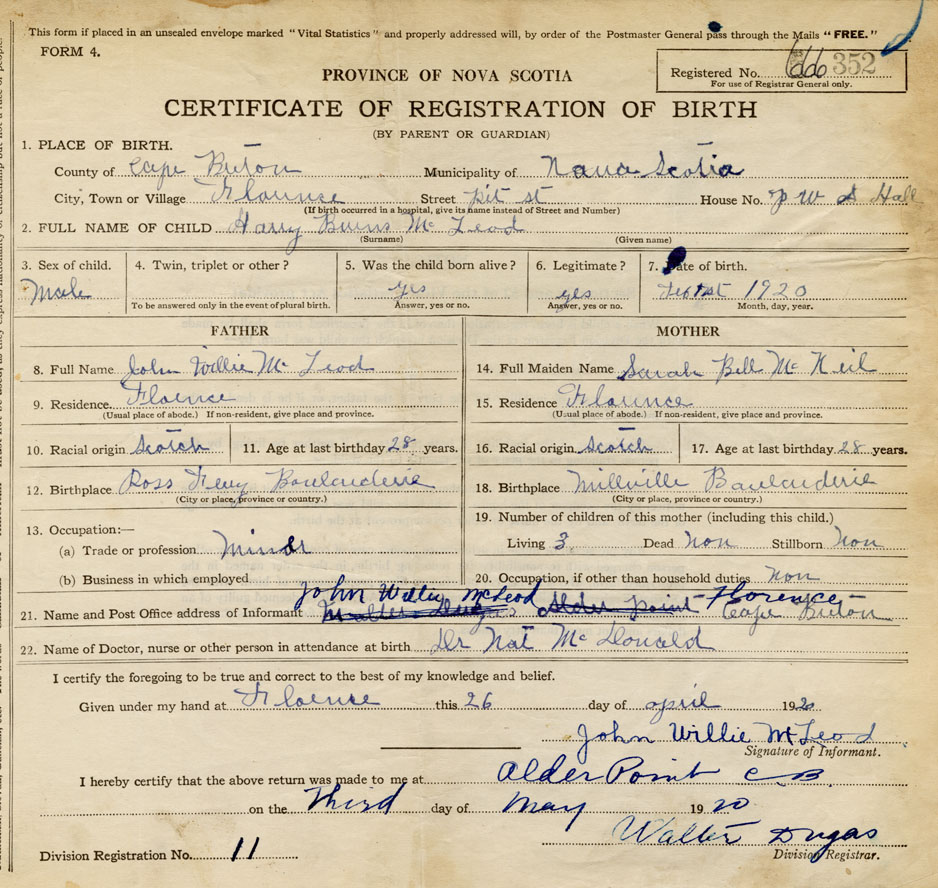 This form if placed in an unsealed envelope marked "Vital Statistics" and properly addressed will, by order of the Postmaster General pass through the Mails "FREE."
FORM 4.
Registered No. 352
For use of Registrar General only.
PROVINCE OF NOVA SCOTIA
CERTIFICATE OF REGISTRATION OF BIRTH
(BY PARENT OR GUARDIAN)
1. PLACE OF BIRTH.
County of Cape Briton Municipality of Nava Scotia
City, Town or Village Flounse Street Pit st House No. P W A Hall
(If birth occurred in a hospital, give its name instead of Street and Number)
2. FULL NAME OF CHILD Harry Burns Mc Leod
(Surname) (Given name)
3. Sex of child. 4. Twin, triplet or other? 5. Was the child born alive? 6. Legitimate? 7. Date of birth.
Male yes yes Feb 1st 1920
To be answered only in the event of plural birth. Answer, yes or no. Answer, yes or no. Month, day, year.
FATHER MOTHER
8. Full Name John Willie Mc Leod 14. Full Maiden Name Sarah Bell Mc Neil
9. Residence. Floence 15. Residence Flaurence
(Usual place of abode.) If non-resident, give place and province. (Usual place of abode.) If non-resident, give place and province.
10. Racial origin Scotch 11. Age at last birthday 28 years. 16. Racial origin Scotch 17. Age at last birthday 28 years.
12. Birthplace Ross Fery Boulauderie 18. Birthplace Millville Baulauderie
(City or place, province or country.) (City or place, province or country.)
13. Occupation:— 19. Number of children of this mother (including this child.)
(a) Trade or profession Miner Living 3 Dead Non Stillborn Non
(b) Business in which employed 20. Occupation, if other than household duties Non
John Willie McLeod Florence
21. Name and Post Office address of Informant Walter Dugas Alder Point Cape Briton
22. Name of Doctor, nurse or other person in attendance at birth Dr Nat Mc Donald
I certify the foregoing to be true and correct to the best of my knowledge and belief.
Given under my hand at Floence this 26 day of april 1920
John Willie McLeod
Signature of Informant.
I hereby certify that the above return was made to me at Alder Point C B
on the Third day of May 1920
Walter Dugas
Division Registrar.
Division Registration No. 11